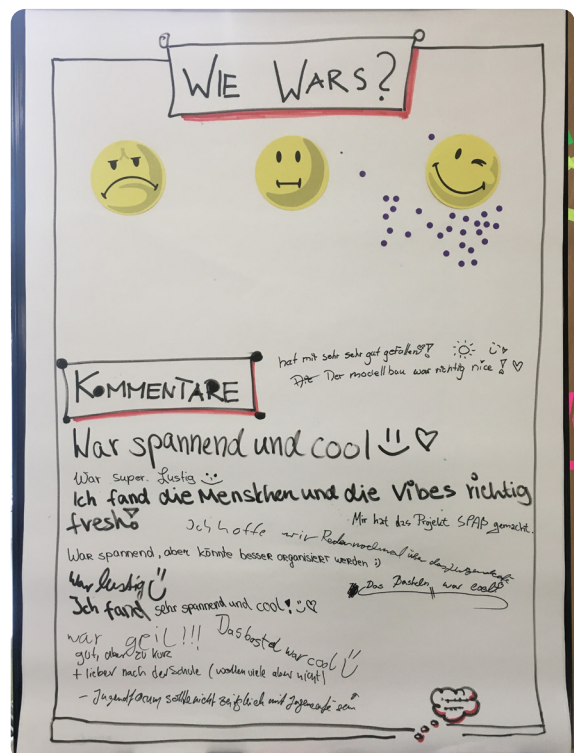 WIE WARS?
hat mir sehr sehr gut gefallen!
Der modellbau war richtig nice!
KOMMENTARE
War spannend und cool
War super. Lustig
Ich fand die Menschen und die Vibes richtig
fresh!
Mir hat das Projekt SPAß gemacht.
Ich hoffe wir Reden nochmal über das Jugendcafe
War spannend, aber könnte besser organisiert werden :)
War lustig
Das Basteln war cool
Ich fand sehr spannend und cool!
war geil!!!
Das bastel war cool
gut, aber zu kurz
+ lieber nach der Schule (wollen viele aber nicht)
- Jugendforum sollte nicht zeitgleich mit Jugencafe sein